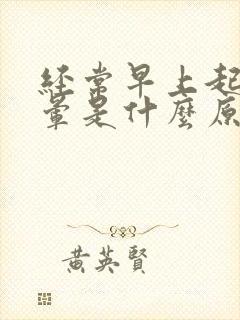 經常早上起
暈是什麼原
黃英賢